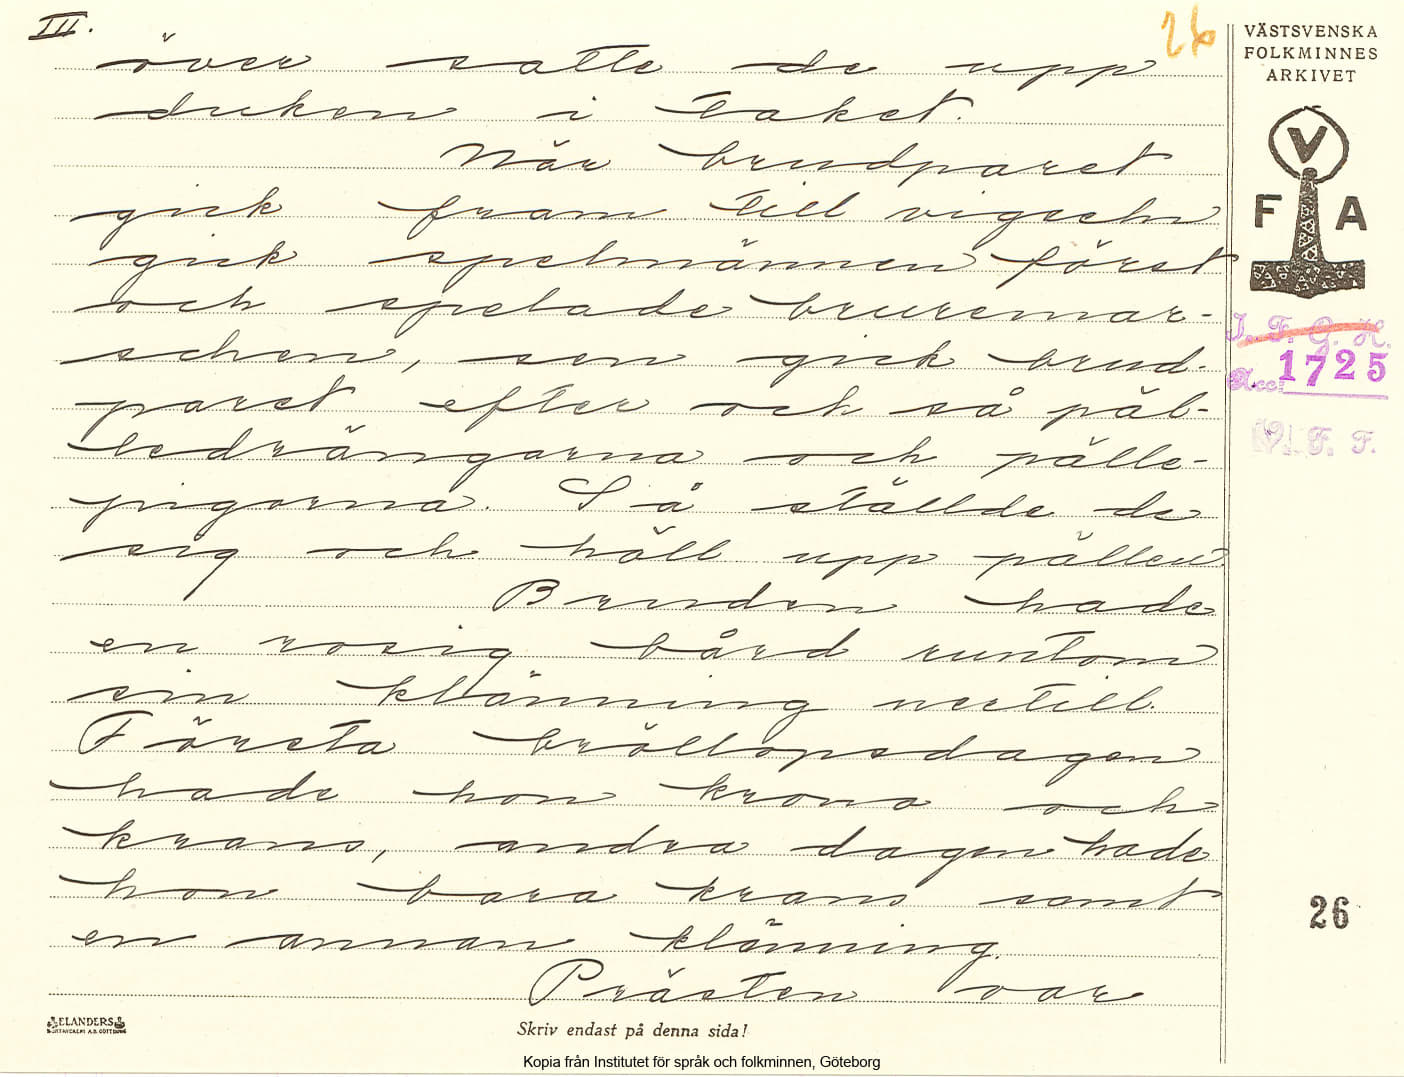 III.
26
över satte de upp
duken i taket.
När brudparet
gick fram till vigseln
gick spelmännen först
och spelade bruremar-
schen, sen gick brud-
paret efter och så päl-
ledrängarna och pälle-
pigorna. Så ställde de
sig och höll upp pällen.
Bruden hade
en rosig bård runtom
sin klänning nertill.
Första bröllopsdagen
hade hon krona och
krans, andra dagen hade
hon bara krans samt
en annan klänning.
Prästen var
VÄSTSVENSKA
FOLKMINNES
ARKIVET
V
F A
I. F. G. H.
Acc: 1725
V. F. F.
26
ELANDERS
Skriv endast på denna sida!
Kopia från Institutet för språk och folkminnen, Göteborg